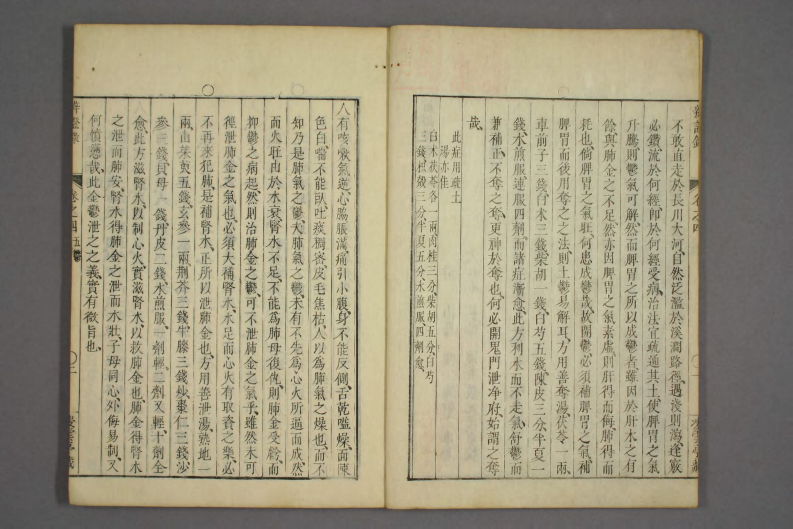 不敢直走於長川大河自然泛濫於溪澗路徑遇淺則瀉逢竅
必鑽流於何經卽於何經受病治法宜疏通其土使脾胃之氣
升騰則鬱氣可解然而脾胃之所以成鬱者雖因於肝木之有
餘與肺金之不足然亦因脾胃之氣素虛則肝得而侮肺得而
耗也倘脾胃之氣旺何患成鬱哉故開鬱必須補脾胃之氣補
脾胃而後用奪之之法則土鬱易解耳方用善奪湯茯苓一兩
車前子三錢白朮三錢柴胡一錢白芍五錢陳皮三分半夏一
錢水煎服連服四劑而諸症漸愈此方利水而不走氣舒鬱而
兼補正不奪之奪更神於奪也何必開鬼門泄淨府始謂之奪
哉
此症用疏土湯亦佳
白朮茯苓各一兩肉桂三分柴胡五分白芍
三錢枳殼三分半夏五分水煎服四劑愈
辨證錄
卷之四
人有咳嗽氣逆心脇脹滿痛引小腹身不能反側舌乾嗌燥面陳
色白喘不能臥吐痰稠密皮毛焦枯人以爲肺氣之燥也而不
知乃是肺氣之鬱夫肺氣之鬱未有不先爲心火所逼而成然
而火旺由於水衰腎水不足不能爲肺母復仇則肺金受虧而
抑鬱之病起然則治肺金之鬱可不泄肺金之氣乎雖然未可
徑泄肺金之氣也必須大補腎水水足而心火有取資之樂必
不再來犯肺是補腎水正所以泄肺金也方用善泄湯熟地一
兩山茱萸五錢玄參一兩荆芥三錢牛膝三錢炒棗仁三錢沙
參三錢貝母一錢丹皮二錢水煎服一劑輕二劑又輕十劑全
愈此方滋腎水以制心火實滋腎水以救肺金也肺金得腎水
之泄而肺安腎水得肺金之泄而水壯子母同心外侮易制又
何憤懣哉此金鬱泄之之義實有微旨也
辨證錄
卷之四